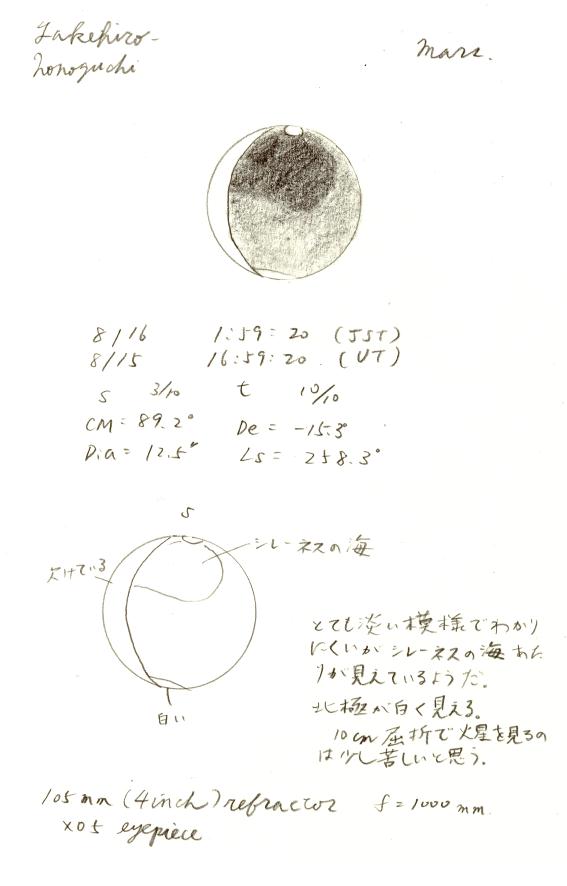 Takehiro
Nonoguchi
Mars.
8/16 1:59:20 (JST)
8/15 16:59:20 (UT)
S 3/10 t 10/10
CM = 89.2° De = -15.3°
Dia = 12.5" Ls = 258.3°
S
シレーネスの海
欠けている
白い
とても淡い模様でわかり
にくいがシレーネスの海あた
りが見えているようだ。
北極が白く見える。
10cm屈折で火星を見るの
は少し苦しいと思う。
105mm (4inch) refractor f=1000mm.
eyepiece